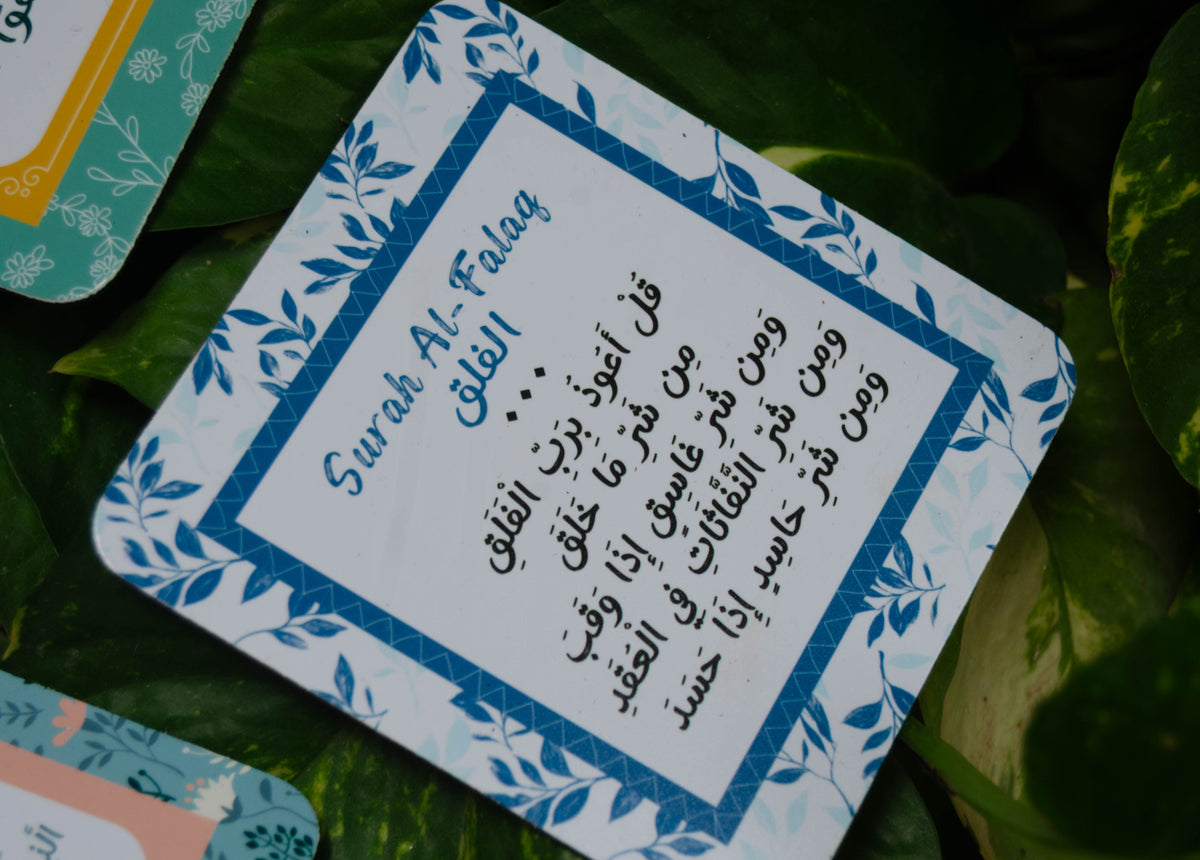 Surah Al-Falaq
الفلق
...
قُلْ أَعُوذُ بِرَبِّ الْفَلَقِ
مِن شَرِّ مَا خَلَقَ
وَمِن شَرِّ غَاسِقٍ إِذَا وَقَبَ
وَمِن شَرِّ النَّفَّاثَاتِ فِي الْعُقَدِ
وَمِن شَرِّ حَاسِدٍ إِذَا حَسَدَ